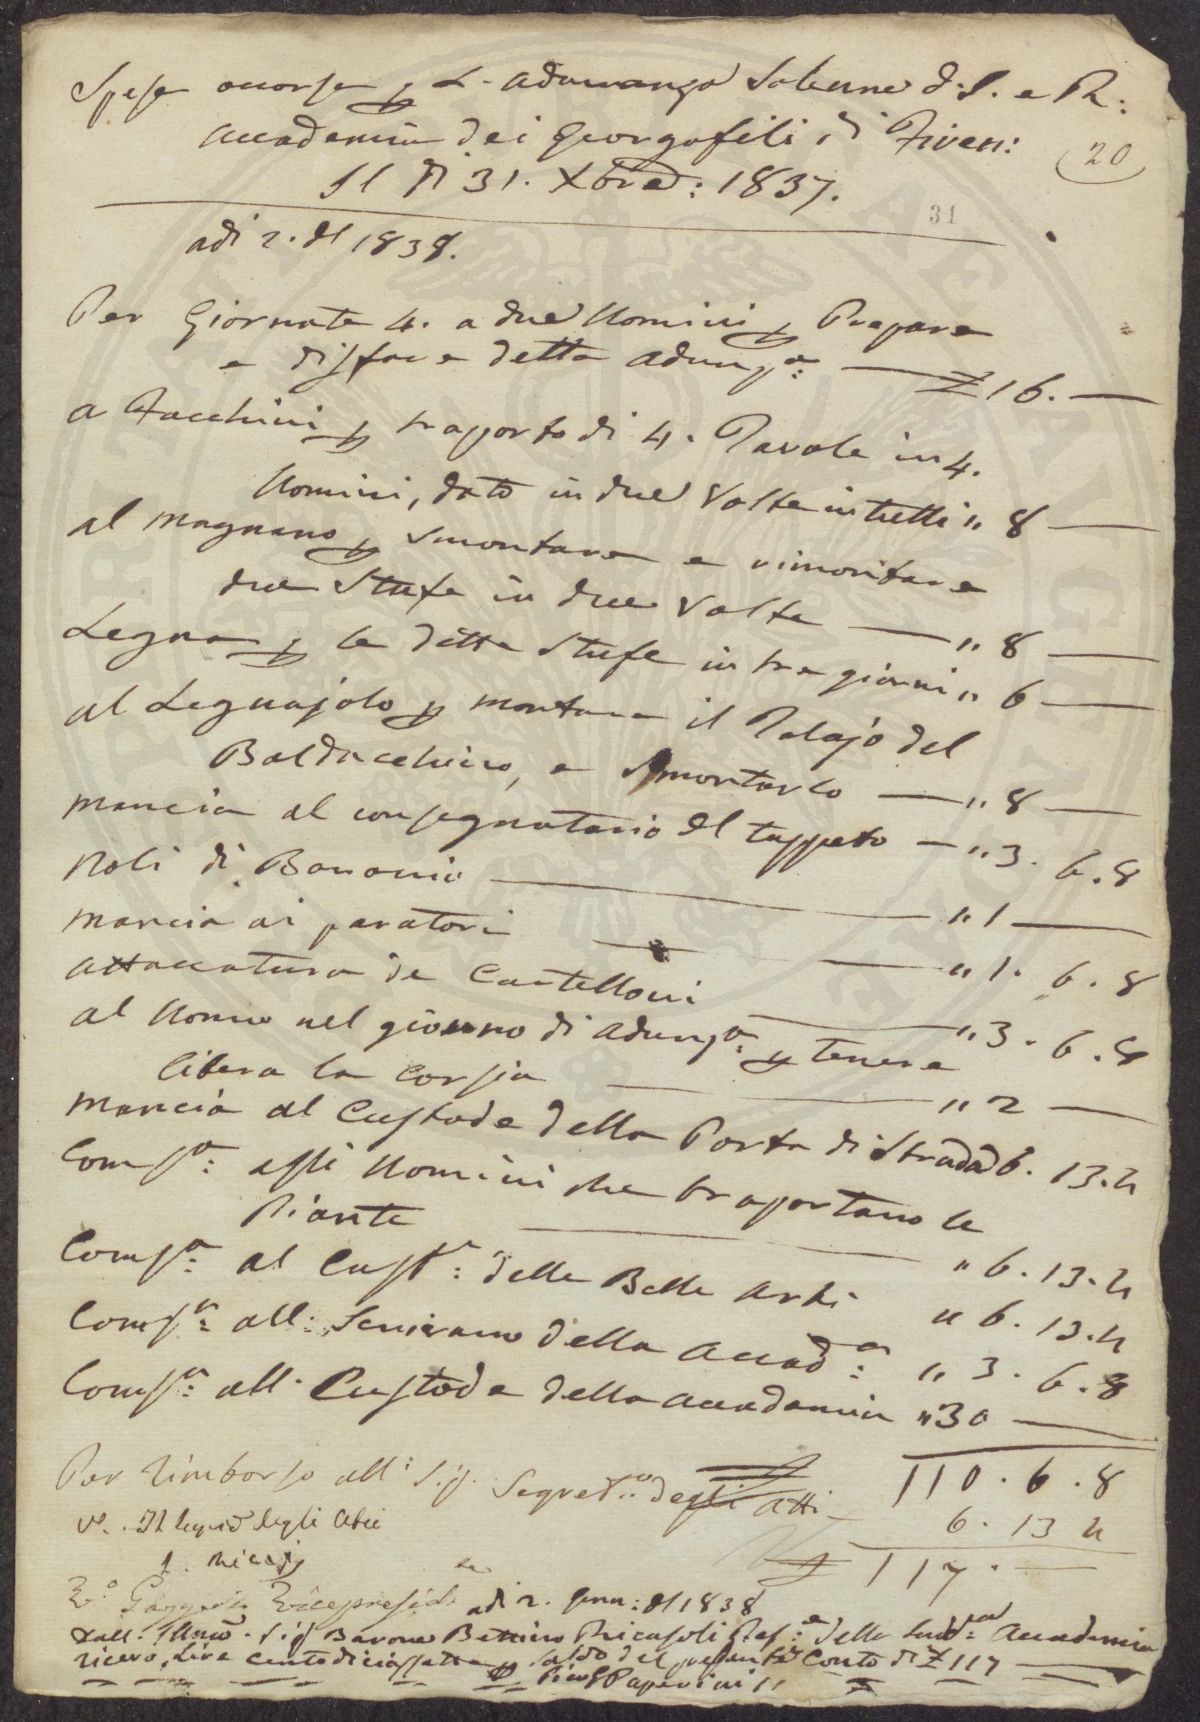 Spese occorse p L'Adunanza Solenne d: I. e R:
Accademia dei Georgofili di Firen:
Il dì 31. Xbre: 1837.
20
31
adi 2. del 1838.
Per Giornate 4. a due Uomini p Prepare
e disfare detta Adunza: £ 16. —
a Facchini p traporto di 4. Tavole in 4.
Uomini, dato in due Volte in tutti " 8 —
al Magnano p Smontare e rimontare
due Stufe in due Volte — " 8 —
Legna p le dette Stufe in tre giorni " 6 —
al Legnajolo p montare il Telajo del
Baldacchino, e Smontarlo — " 8 —
Mancia al consegnatario del tappeto — " 3. 6. 8
Noli di — " 1 —
Mancia ai paratori — " 1. 6. 8
Attaccatura de Cartelloni — " 3. 6. 8
al Uomo nel giorno di Adunza: p tenere
libera la Corsia — " 2 —
Mancia al Custode della Porta di Strada 6. 13. 4
Comsa: agli Uomini che traportano le
Piante — " 6. 13. 4
Comsa: al Custe: delle Belle Arti " 6. 13. 4
Comsa: all: Scrivano della Accada: " 3. 6. 8
Comsa: all. Custode della Accademia " 30 —
110. 6. 8
Per rimborso all: Sig. Segreto: degli Atti — 6. 13 4
£ 117. —
Vo. Il Segrio degli Atti
Vo. Vicepreside
adi 2. Genn: del 1838
Dall: Sig Barone Bettino Ricasoli della Sudda: Accademia
ricevo Lire centodiciassette p saldo del presente Conto di £ 117 —
Paperini